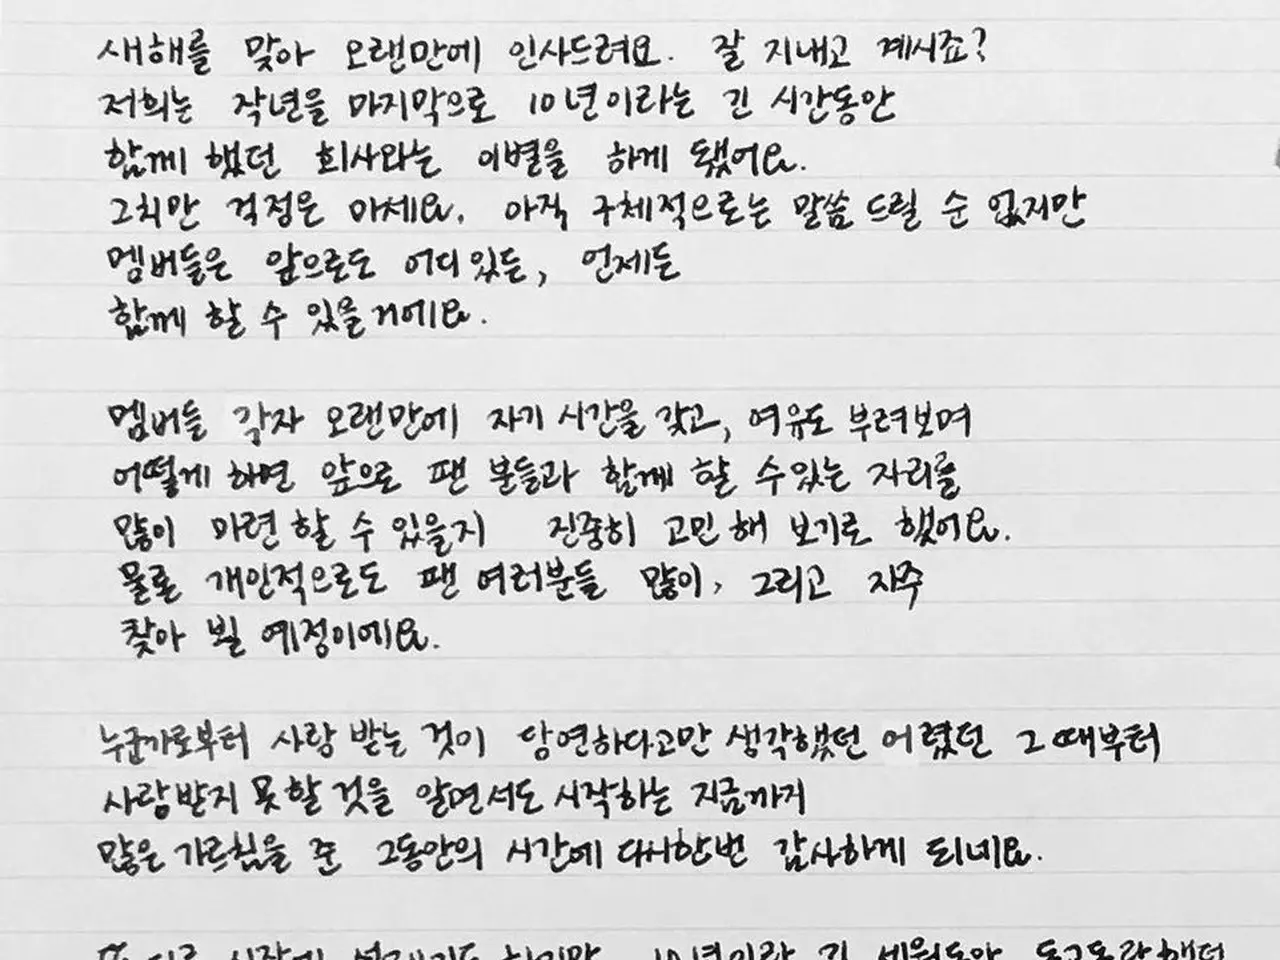 새해를 맞아 오랜만에 인사드려요. 잘 지내고 계시죠?
저희는 작년을 마지막으로 10년이라는 긴 시간동안
함께 했던 회사와는 이별을 하게 됐어요.
그치만 걱정은 마세요. 아직 구체적으로는 말씀 드릴 순 없지만
멤버들은 앞으로도 어디 있든, 언제든
함께 할 수 있을거에요.
멤버들 각자 오랜만에 자기 시간을 갖고, 여유도 부려보며
어떻게 하면 앞으로 팬 분들과 함께 할 수 있는 자리를
많이 마련 할 수 있을지 진중히 고민 해 보기로 했어요.
물론 개인적으로도 팬 여러분들 많이, 그리고 자주
찾아 뵐 예정이에요.
누군가로부터 사랑 받는 것이 당연하다고만 생각했던 어렸던 그 때부터
사랑받지 못할 것을 알면서도 시작하는 지금까지
많은 가르침을 준 그동안의 시간에 다시한번 감사하게 되네요.
또 다른 시작에 설레기도 하지만 10년이란 긴 세월동안 동고동락했던